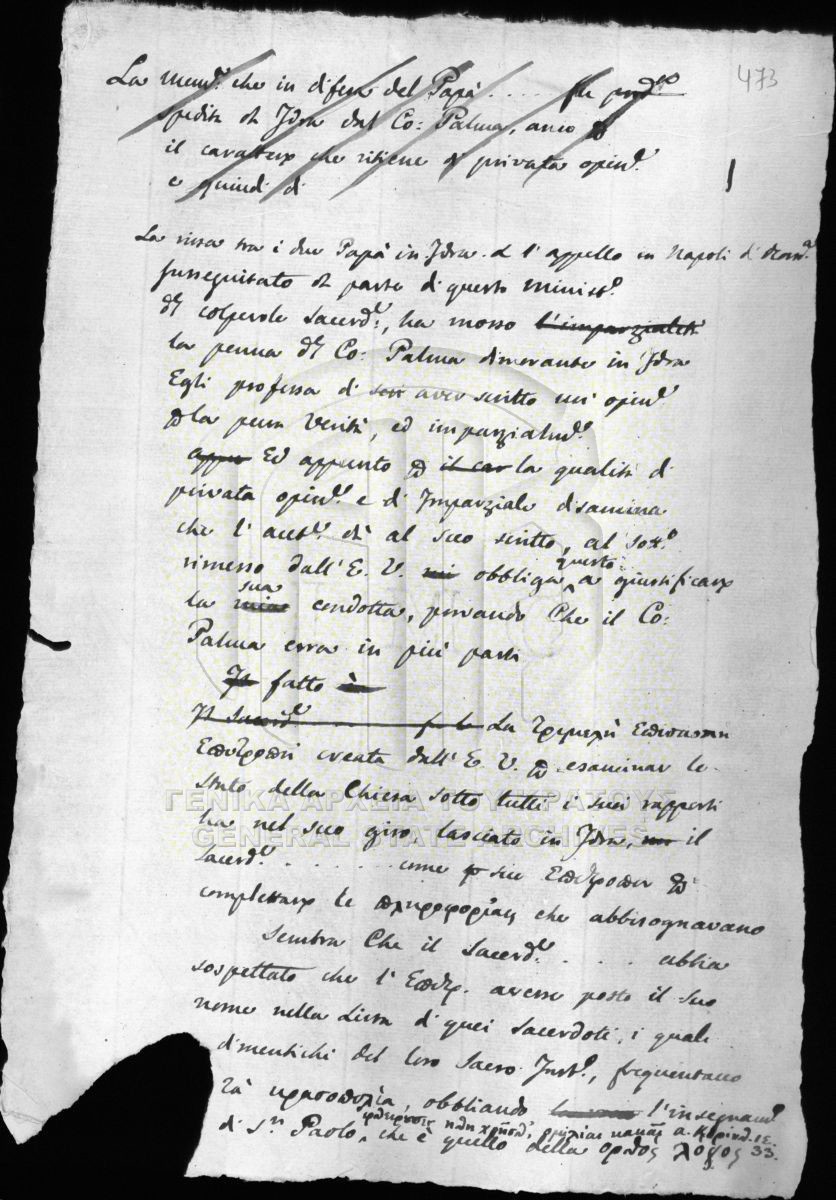 473
La mem.ª che in difesa del Papà .... fu
spedita da Idra dal Co: Palma, anco
il carattere che ritiene di privata opin.e
e quindi di
1
La rissa tra i due Papà in Idra e l'appello in Napoli di Rom.a
susseguitato da parte di questo Minist.o
del colpevole Sacerd.e, ha mosso l'imparzialità
la penna del Co: Palma dimorante in Idra
Egli professa di aver scritto un' opin.e
la pura Verità, ed imparzialm.e
appu Ed appunto il car la qualità di
privata opin.e e di Imparziale disamina
che l'aut.e dà al suo scritto, al sot.o
rimesso dall'E. V. mi obbliga questo a giustificare
la mia sua condotta, provando Che il Co:
Palma erra in più parti
Il fatto è
Il Sacerd.e ........ fu la La Τριμελὴ
Επιτροπὴ creata dall'E. V. esaminar lo
stato della Chiesa sotto tutti i suoi rapporti
ha nel suo giro, lasciato in Idra, il
Sacerd.e ........ come suo Επίτροπον
completare le πληροφορίαις che abbisognavano
Sembra Che il Sacerd.e .... abbia
sospettato che l'Επιτρ. avesse posto il suo
nome nella Lista di quei Sacerdoti, i quali
dimentichi del loro Sacro Inst.o, frequentano
τὰ κρασοπολία, obbliando l'insegnam.o
di S.n Paolo, φθείρουσιν ἤθη χρῆσθ' ὁμιλίαι κακαὶ α. Κορινθ. ιε. 33.
che è quello della ορθὸς λόγος
ΓΕΝΙΚΑ ΑΡΧΕΙΑ ΤΟΥ ΚΡΑΤΟΥΣ
GENERAL STATE ARCHIVES